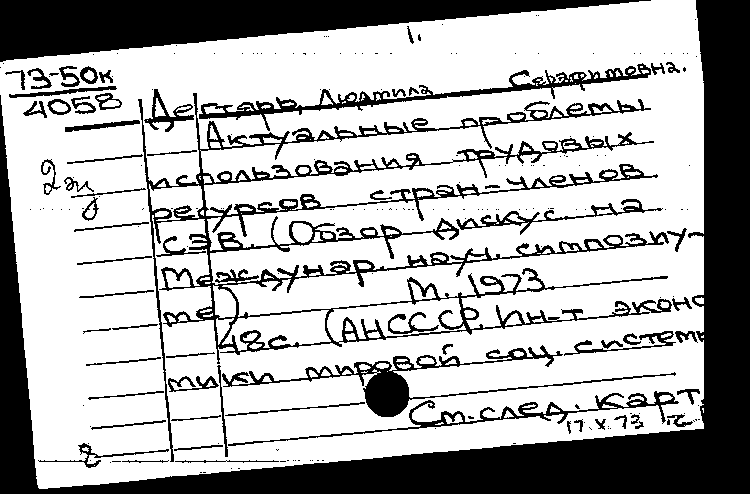 1.
73-50к
4058
Дегтярь, Людмила Серафимовна.
Актуальные проблемы
использования трудовых
ресурсов стран-членов
СЭВ. (Обзор дискус. на
Междунар. науч. симпозиу-
ме). М., 1973.
48с. (АНСССР. Ин-т эконо
мики мировой соц. системы
См. след. карт.
17.X.73
2эк
8